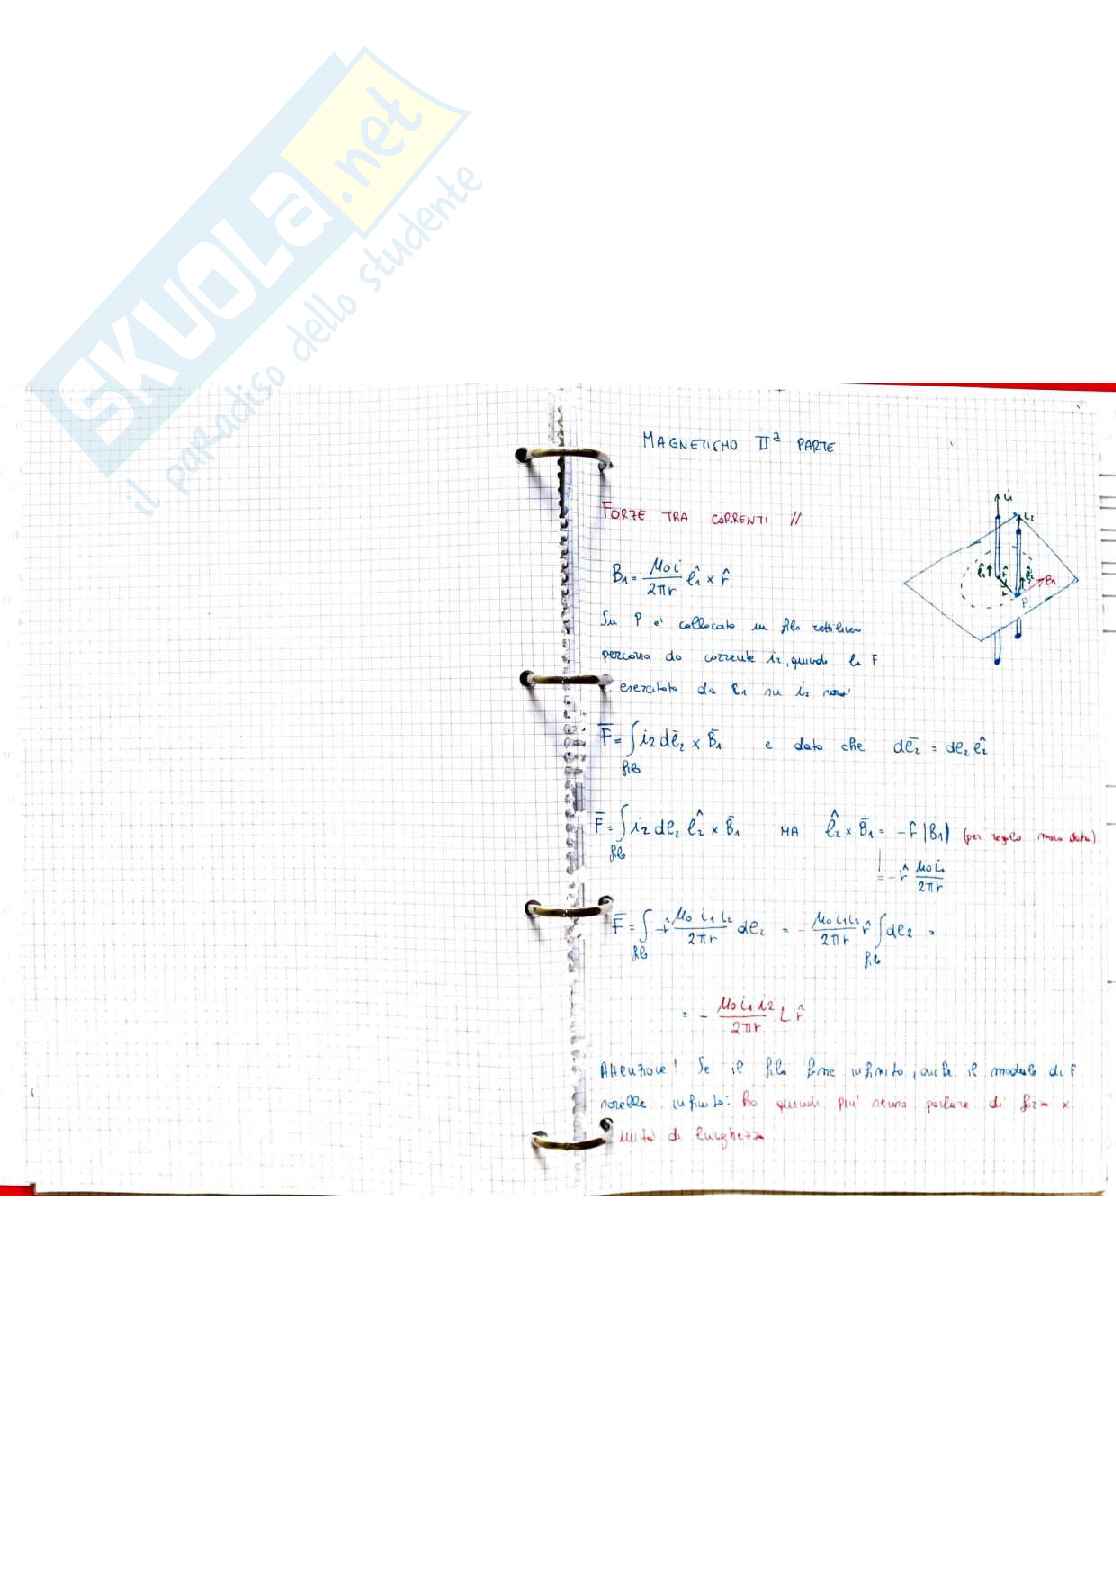 SKUOLA.net
il paradiso dello studente
MAGNETISMO IIª PARTE
FORZE TRA CORRENTI //
B₁ = μ₀ i / 2πr ℓ̂₁ × r̂
In P è collocato un filo rettilineo
percorso da corrente i₂, quindi la F
esercitata da i₁ su i₂
F̄ = ∫filo i₂ dℓ̄₂ × B̄₁ e dato che dℓ̄₂ = dℓ₂ ℓ̂₂
F̄ = ∫filo i₂ dℓ₂ ℓ̂₂ × B̄₁ MA ℓ̂₂ × B̄₁ = -r̂ |B₁| (per regola mano destra)
= -r̂ μ₀ i₁ / 2πr
F̄ = ∫filo -r̂ μ₀ i₁ i₂ / 2πr dℓ₂ = - μ₀ i₁ i₂ / 2πr r̂ ∫filo dℓ₂ =
= - μ₀ i₁ i₂ / 2πr L r̂
Attenzione! Se il filo fosse infinito, anche il modulo di F
sarebbe infinito: ha quindi più senso parlare di forza x
unità di lunghezza
i₁
i₂
ℓ̂₁
r̂
ℓ̂₂
B₁
P